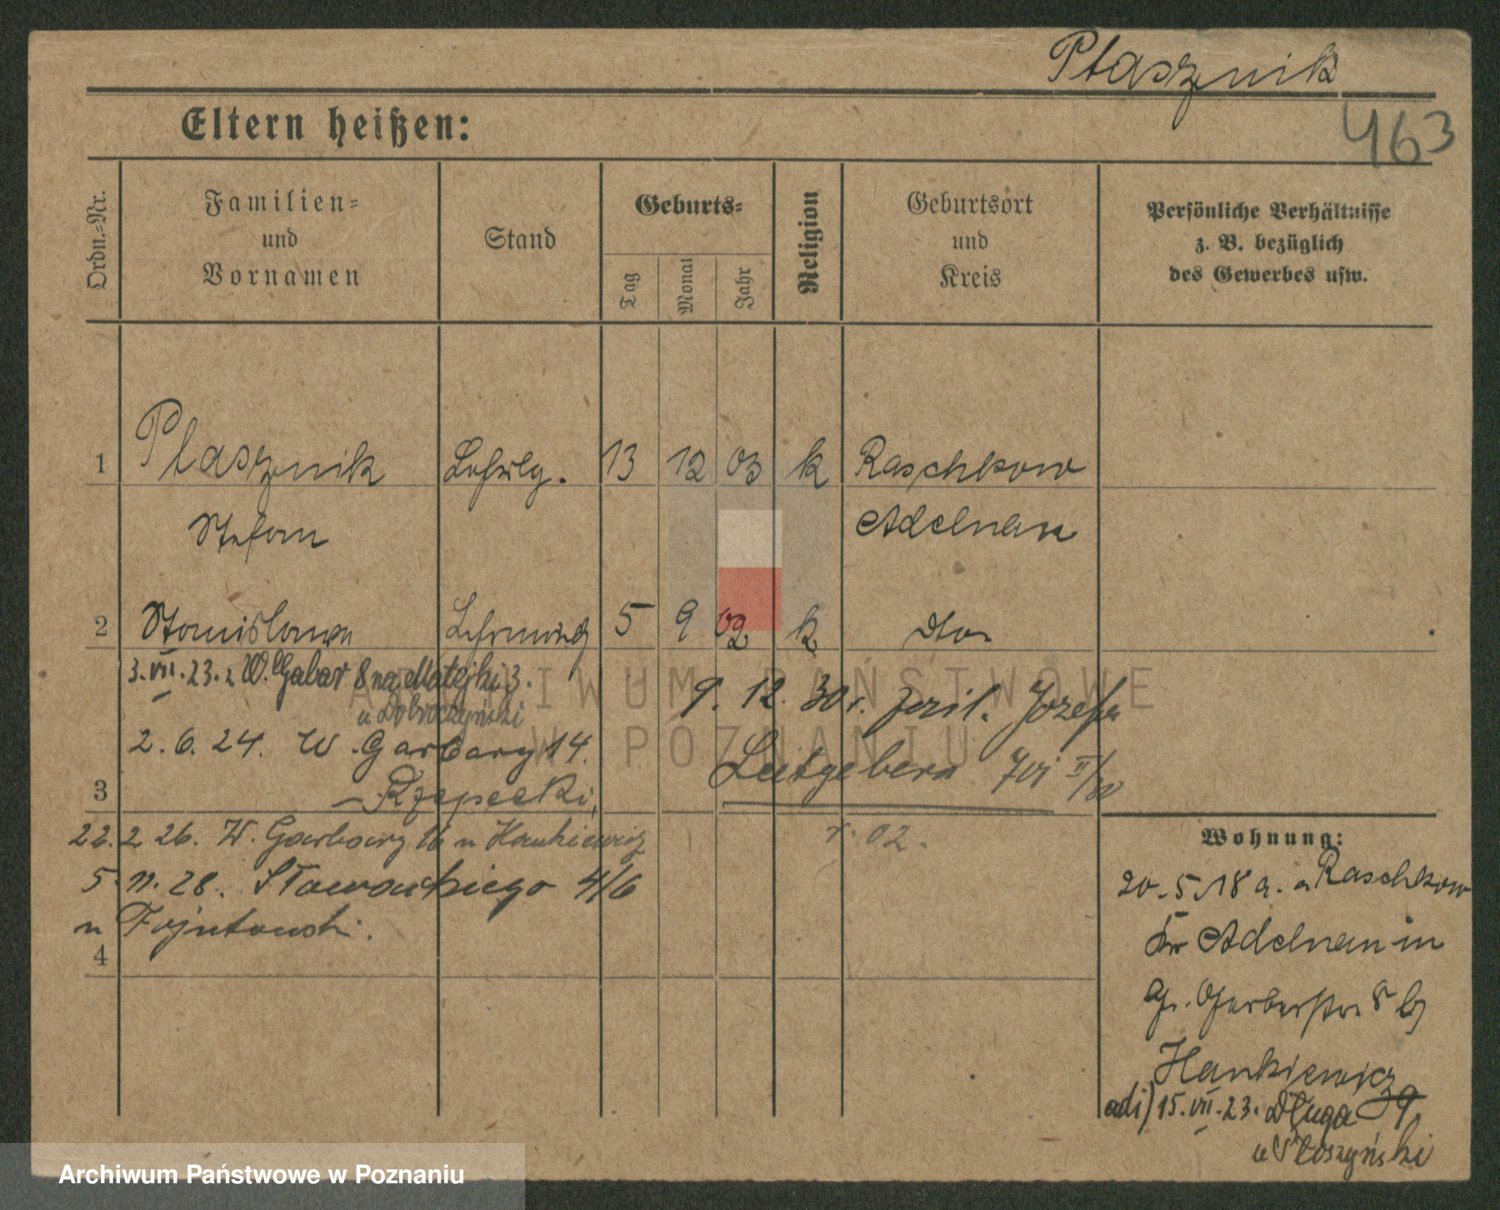 Ptasznik
463
Eltern heißen:
Ordn.-Nr.
Familien-
und
Vornamen
Stand
Geburts-
Tag
Monat
Jahr
Religion
Geburtsort
und
Kreis
Persönliche Verhältnisse
z. B. bezüglich
des Gewerbes usw.
1 Ptasznik 13 12 03 k Raschkow
Stefan Adelnau
2 Stanislawa 5 9 02 k dto
3. VII. 23. W. Gabar 8 na Matejki 3.
u Dobroczyński
9. 12. 30 r. Józefa
2. 6. 24. W. Garbary 14.
Leitgebera
3 Rzepecki
22. 2 26. W. Garbary 16 u Hankiewicz
r. 02.
5. 11. 28. Słowackiego 4/6
u Fojutowski.
4
Wohnung:
20. 5. 18 a. Raschkow
Kr Adelnau in
Gr. Gerberstr. 8 bj
Hankiewicz
adi) 15. VII. 23. Długa 9.
u
ARCHIWUM PAŃSTWOWE
W POZNANIU
Archiwum Państwowe w Poznaniu